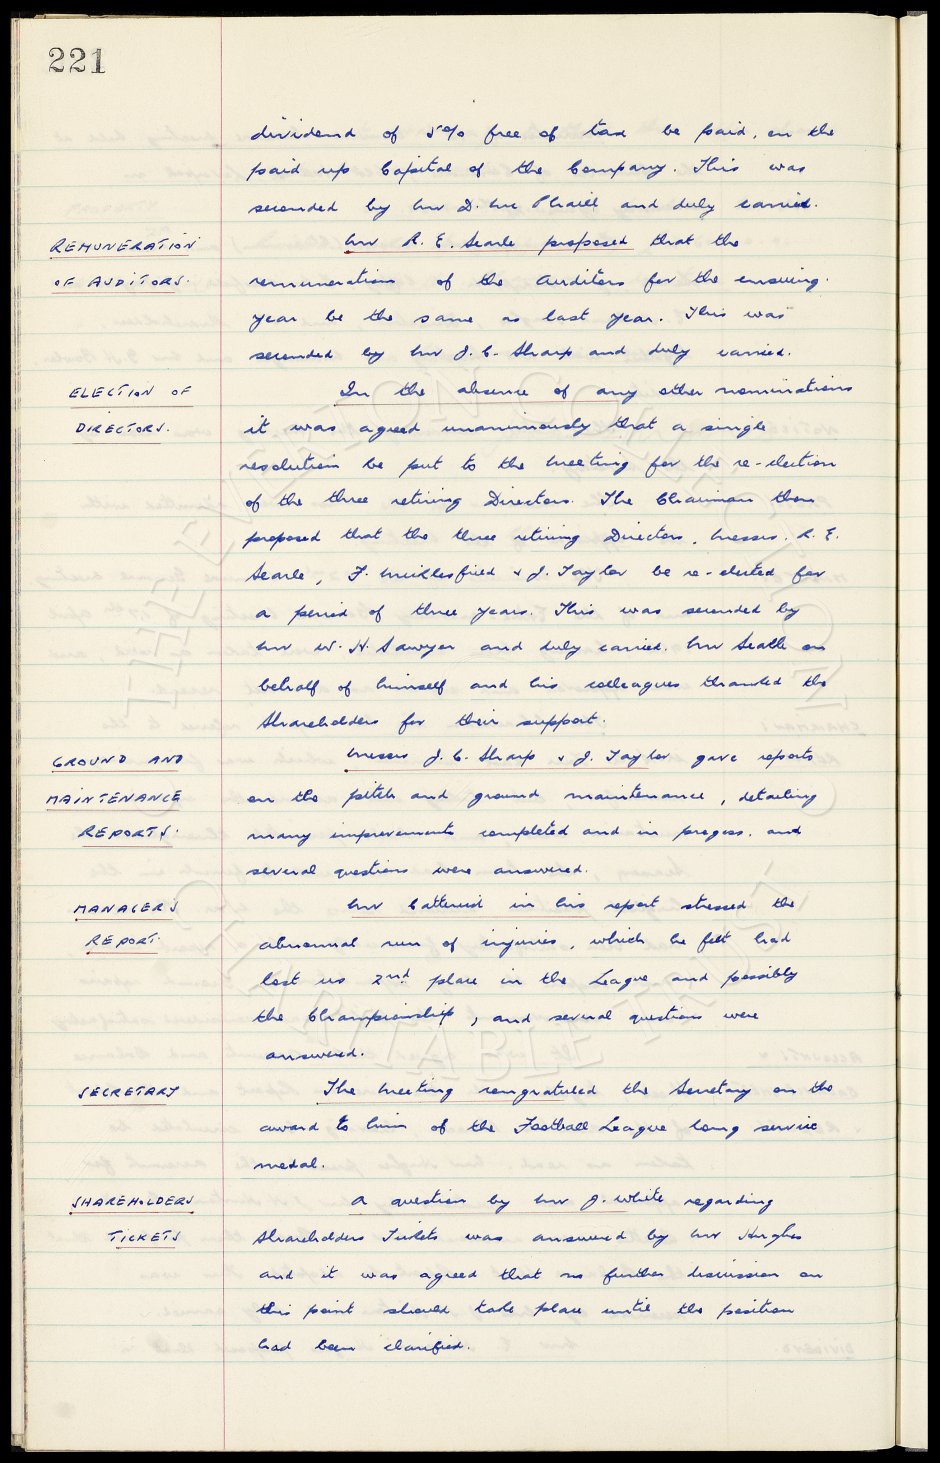 221
dividend of 5% free of tax be paid, on the
paid up Capital of the Company. This was
seconded by Mr D. Mc Phaill and duly carried.
REMUNERATION
OF AUDITORS.
Mr R. E. Searle proposed that the
remuneration of the Auditors for the ensuing
year be the same as last year. This was
seconded by Mr J. C. Sharp and duly carried.
ELECTION OF
DIRECTORS.
In the absence of any other nominations
it was agreed unanimously that a single
resolution be put to the meeting for the re-election
of the three retiring Directors. The Chairman then
proposed that the three retiring Directors, Messrs. R. E.
Searle, F. Micklesfield & J. Taylor be re-elected for
a period of three years. This was seconded by
Mr W. H. Sawyer and duly carried. Mr Searle on
behalf of himself and his colleagues thanked the
Shareholders for their support.
GROUND AND
MAINTENANCE
REPORTS.
Messrs J. C. Sharp & J. Taylor gave reports
on the pitch and ground maintenance, detailing
many improvements completed and in progess. and
several questions were answered.
MANAGERS
REPORT.
Mr Catterick in his report stressed the
abnormal run of injuries, which he felt had
lost us 2nd place in the League and possibly
the Championship, and several questions were
answered.
SECRETARY
The meeting congratuled the Secretary on the
award to him of the Football League long service
medal.
SHAREHOLDERS
TICKETS
A question by Mr J. White regarding
Shareholders Tickets was answered by Mr Hughes
and it was agreed that no further discussion on
this point should take place until the position
had been clarified.